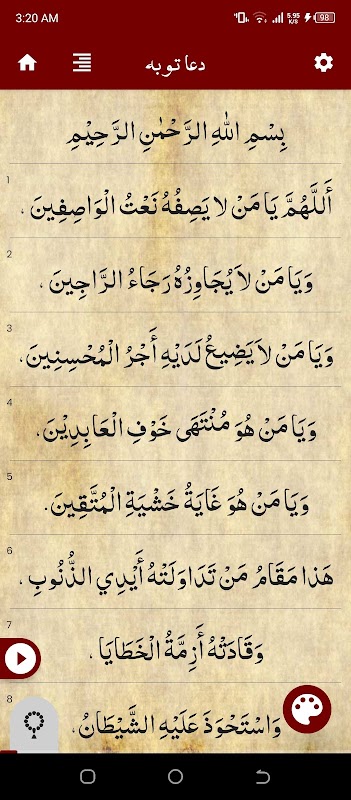 3:20 AM 5.95 K/S 98
دعا توبه
بِسْمِ اللهِ الرَّحْمٰنِ الرَّحِيْمِ
1
أَللَّهُمَّ يَا مَنْ لا يَصِفُهُ نَعْتُ الْوَاصِفِينَ ،
2
وَيَا مَنْ لاَ يُجَاوِزُهُ رَجَاءُ الرَّاجِينَ ،
3
وَيَا مَنْ لاَ يَضِيعُ لَدَيْهِ أَجْرُ الْمُحْسِنِينَ،
4
وَيَا مَنْ هُوَ مُنْتَهَى خَوْفِ الْعَابِدِيْنَ،
5
وَيَا مَنْ هُوَ غَايَةُ خَشْيَةِ الْمُتَّقِينَ.
6
هَذا مَقَامُ مَنْ تَدَاوَلَتْهُ أَيْدِي الذُّنُوبِ ،
7
وَقَادَتْهُ أَزِمَّةُ الْخَطَايَا ،
8
وَاسْتَحْوَذَ عَلَيْهِ الشَّيْطَانُ،